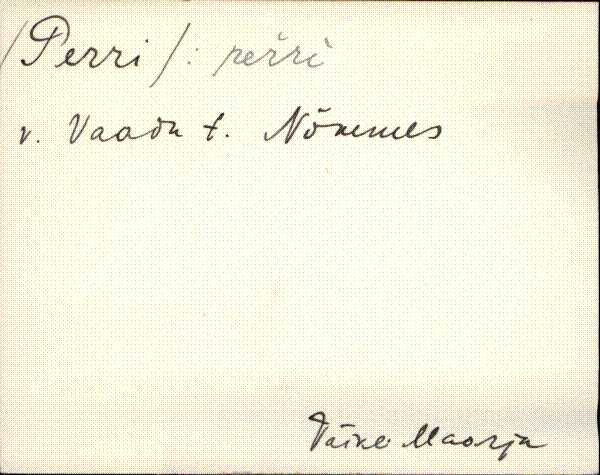 /Perri/: perri
v. Vaada t. Nõmmes
Väike Maarja